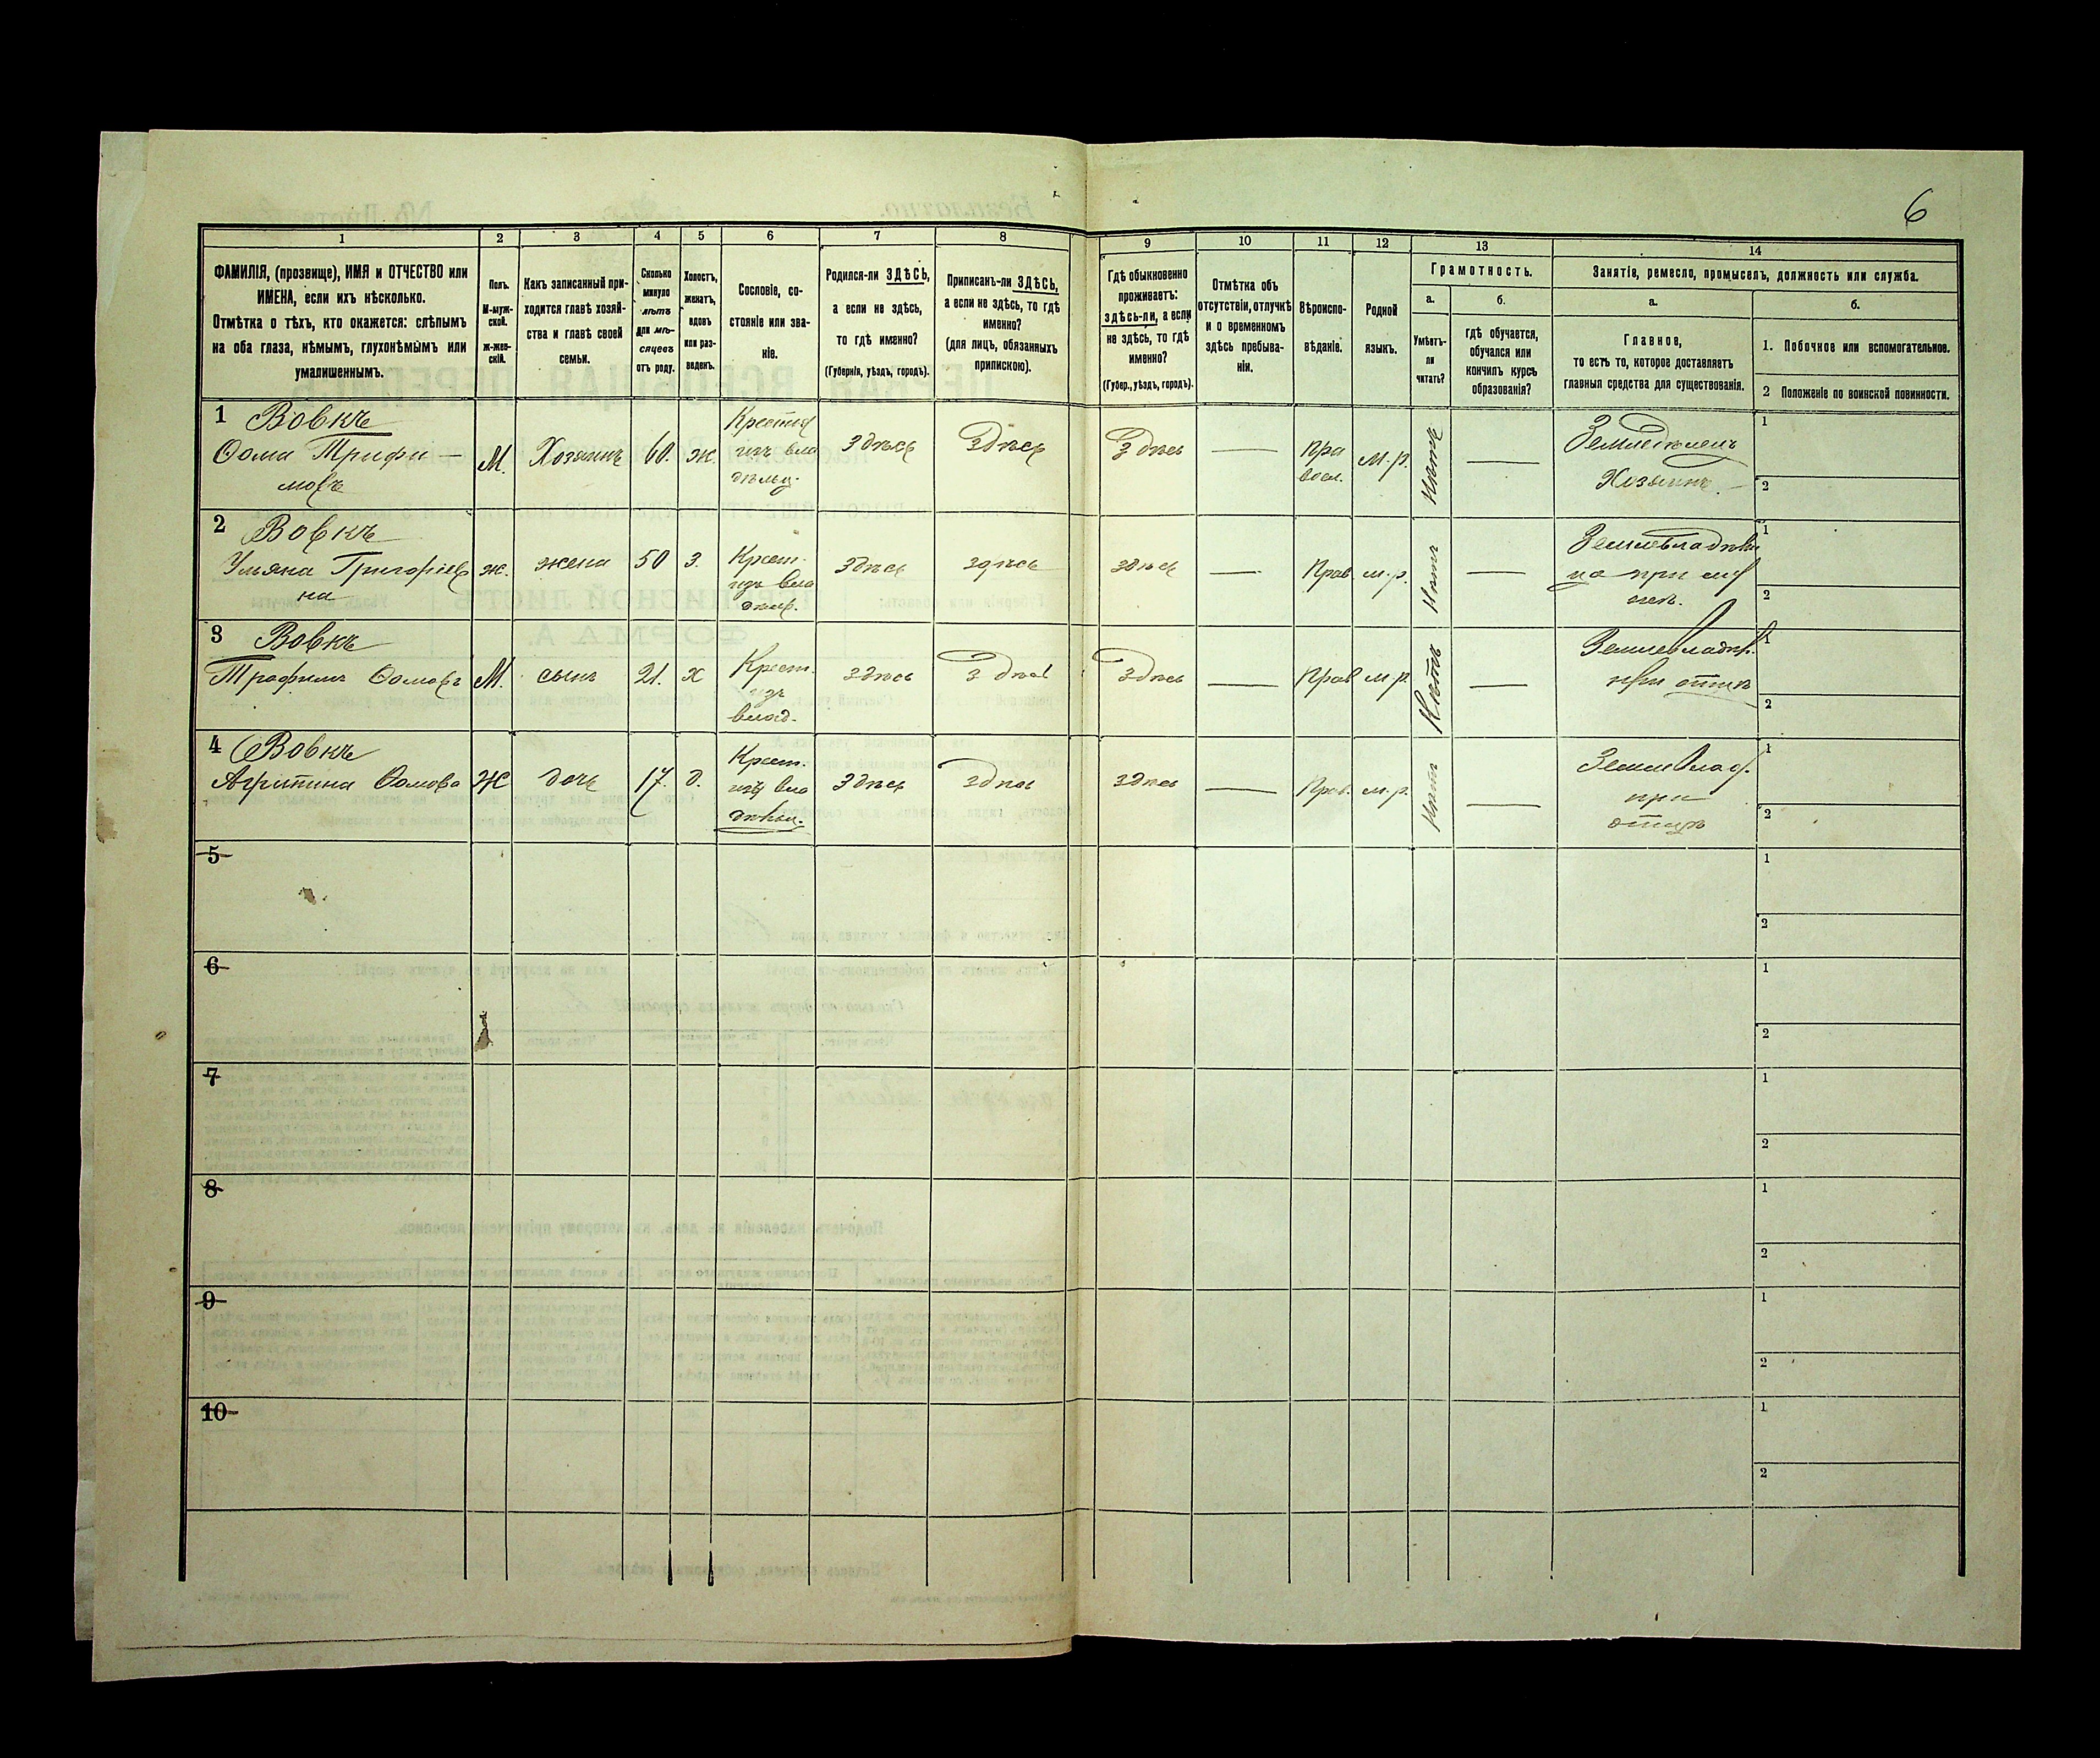 6
1 2 3 4 5 6 7 8 9 10 11 12 13 14
ФАМИЛІЯ, (прозвище), ИМЯ и ОТЧЕСТВО или
ИМЕНА, если ихъ нѣсколько.
Отмѣтка о тѣхъ, кто окажется: слѣпымъ
на оба глаза, нѣмымъ, глухонѣмымъ или
умалишеннымъ.
Полъ.
М-муж-
ской.
ж-жен-
скій.
Какъ записанный при-
ходится главѣ хозяй-
ства и главѣ своей
семьи.
Сколько
минуло
лѣтъ
или мѣ-
сяцевъ
отъ роду.
Холостъ,
женатъ,
вдовъ
или раз-
веденъ.
Сословіе, со-
стояніе или зва-
ніе.
Родился-ли ЗДѢСЬ,
а если не здѣсь,
то гдѣ именно?
(Губернія, уѣздъ, городъ).
Приписанъ-ли ЗДѢСЬ,
а если не здѣсь, то гдѣ
именно?
(для лицъ, обязанныхъ
припискою).
Гдѣ обыкновенно
проживаетъ:
здѣсь-ли, а если
не здѣсь, то гдѣ
именно?
(Губер., уѣздъ, городъ).
Отмѣтка объ
отсутствіи, отлучкѣ
и о временномъ
здѣсь пребыва-
ніи.
Вѣроиспо-
вѣданіе.
Родной
языкъ.
Грамотность.
а. б.
Умѣетъ-
ли
читать?
гдѣ обучается,
обучался или
кончилъ курсъ
образованія?
Занятіе, ремесло, промыселъ, должность или служба.
а. б.
Главное,
то есть то, которое доставляетъ
главныя средства для существованія.
1. Побочное или вспомогательное.
2 Положеніе по воинской повинности.
1 Вовкъ
Ѳома Трифи-
мовъ
М. Хозяинъ 60. ж.
изъ вла
дѣльц.
Здѣсь Здѣсь Здѣсь —
Пра
восл.
м.р. Нѣтъ —
Земледѣлецъ
Хозяинъ.
1
2
2 Вовкъ
Ульяна Григоріев
на
ж. жена 50 з.
Крест.
изъ вла
дѣльц.
здѣсь здѣсь здѣсь — Прав. м.р. Нѣтъ —
1
2
3 Вовкъ
Трофимъ Ѳомовъ М. сынъ 21. х
Крест.
изъ
влад.
здѣсь здѣсь здѣсь — Прав м.р. Нѣтъ —
при отцѣ
1
2
4 Вовкъ
Ѳомова Ж дочь 17. д.
Крест.
изъ вла
дѣльц.
Здѣсь здѣсь здѣсь — Прав. м.р. Нѣтъ —
Землевлад.
при
отцѣ
1
2
5 1
2
6 1
2
7 1
2
8 1
2
9 1
2
10 1
2